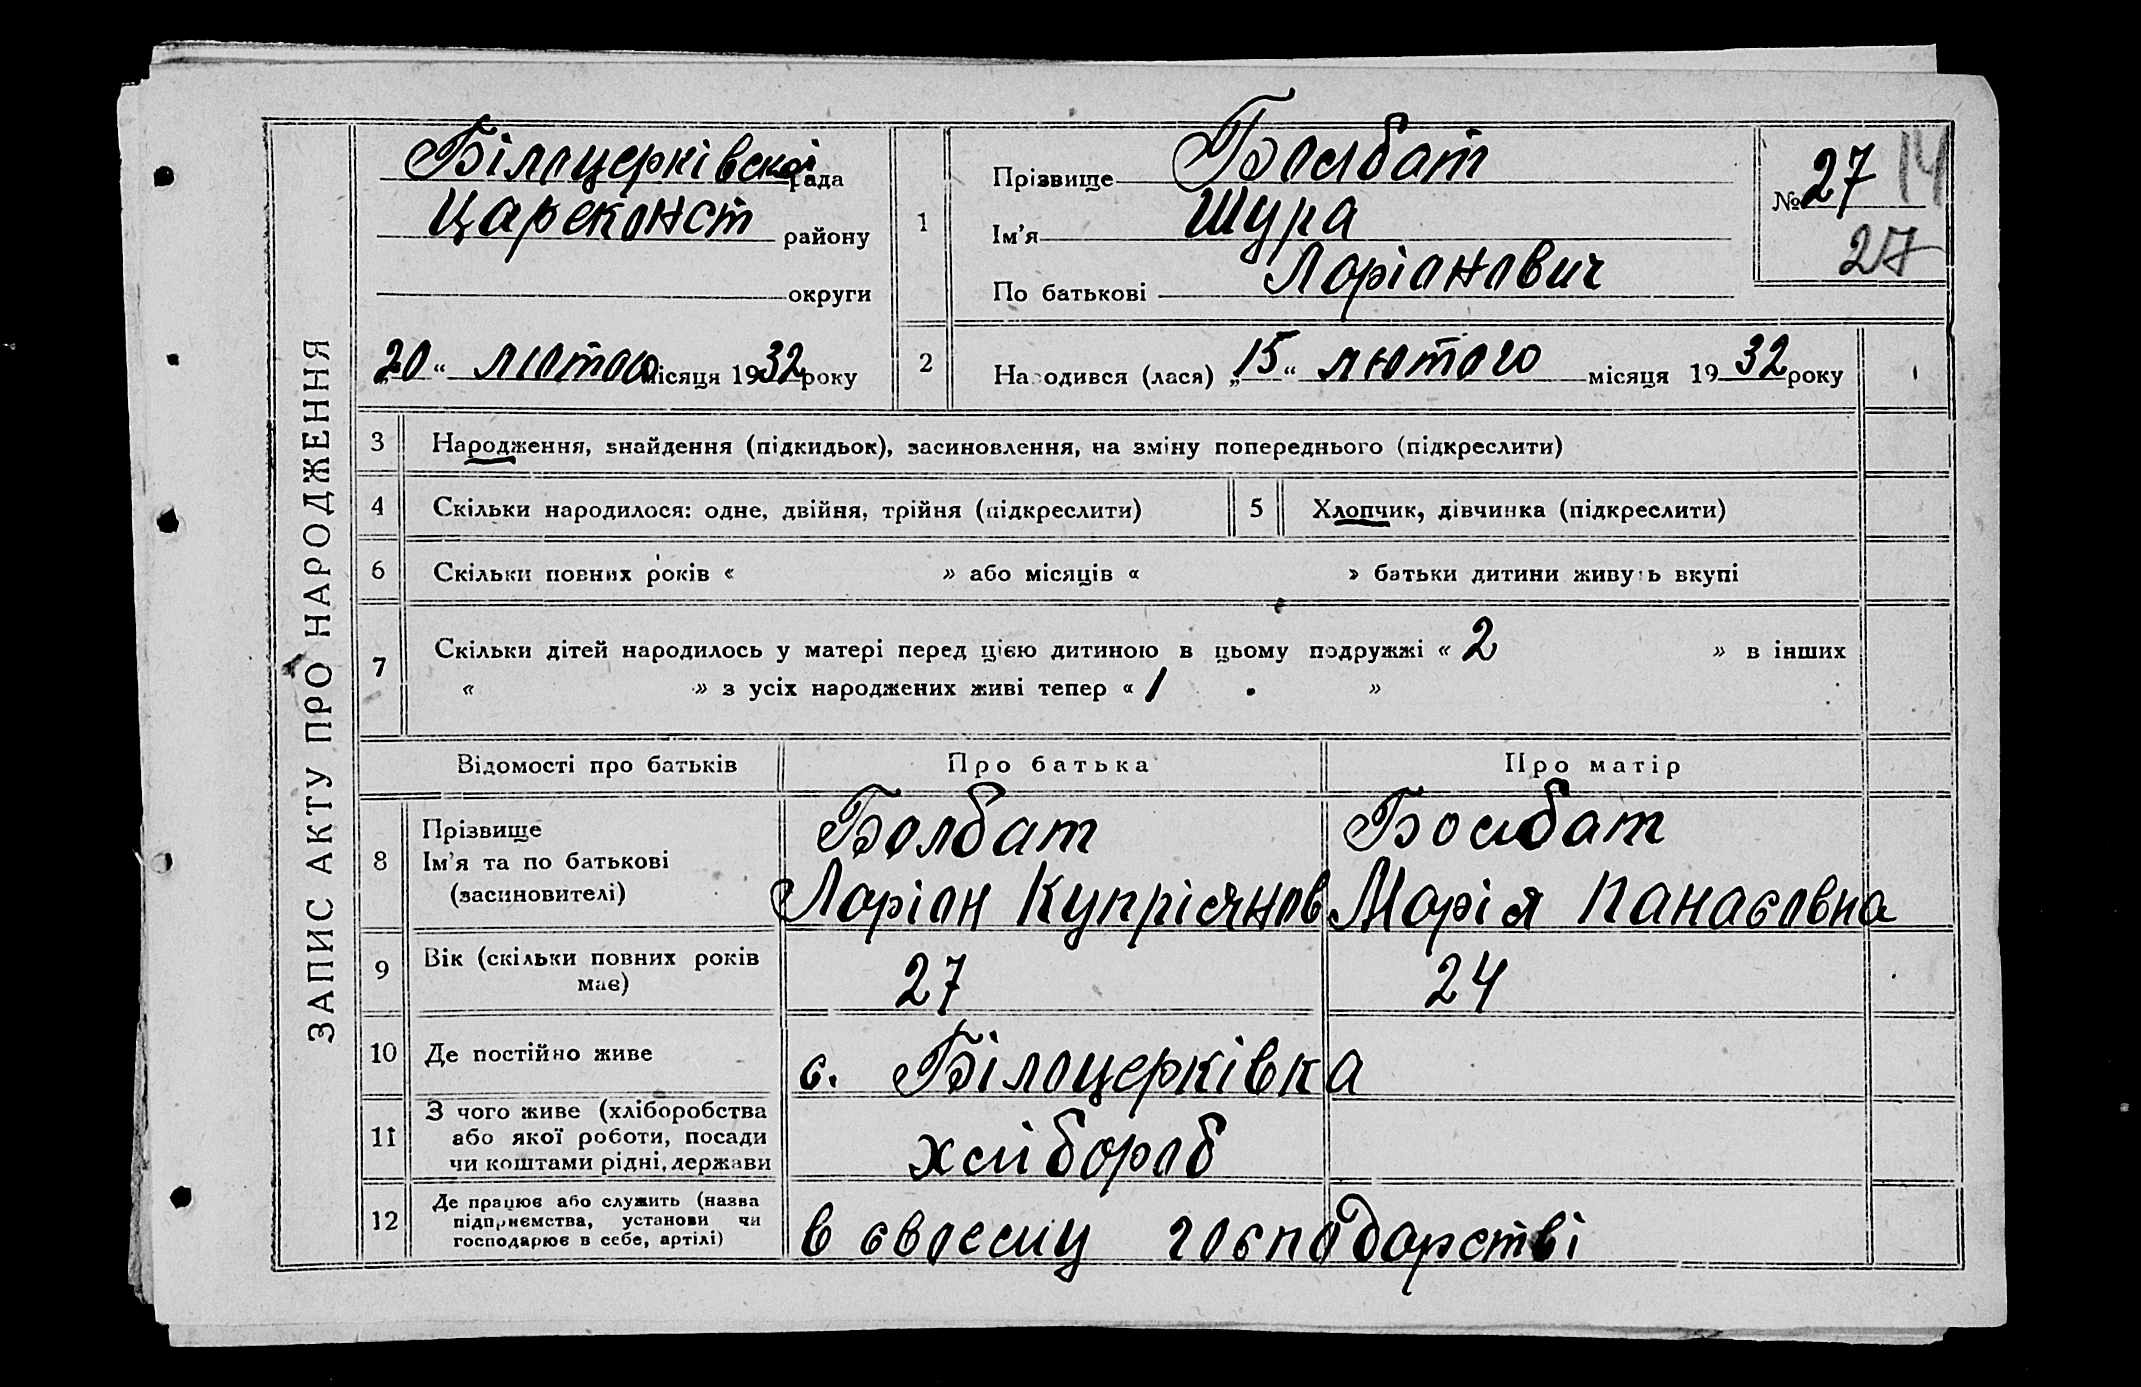 ЗАПИС АКТУ ПРО НАРОДЖЕННЯ
Білоцерківская рада
Цареконст району
округи
„20“ лютого місяця 1932 року
1
Прізвище Болбат
Ім'я Шура
По батькові Ларіонович
№ 27 14
27
2 Народився (лася) „15“ лютого місяця 1932 року
3 Народження, знайдення (підкидьок), засиновлення, на зміну попереднього (підкреслити)
4 Скільки народилося: одне, двійня, трійня (підкреслити) 5 Хлопчик, дівчинка (підкреслити)
6 Скільки повних років « » або місяців « » батьки дитини живуть вкупі
7 Скільки дітей народилось у матері перед цією дитиною в цьому подружжі « 2 » в інших
« » з усіх народжених живі тепер « 1 »
Відомості про батьків Про батька Про матір
8 Прізвище
Ім'я та по батькові
(засиновителі)
Болбат Болбат
Ларіон Купріянов Марія Панасовна
9 Вік (скільки повних років
має)
27 24
10 Де постійно живе с. Білоцерківка
11 З чого живе (хліборобства
або якої роботи, посади
чи коштами рідні, держави
хлібороб
12 Де працює або служить (назва
підприємства, установи чи
господарює в себе, артілі)
в своєму господарстві